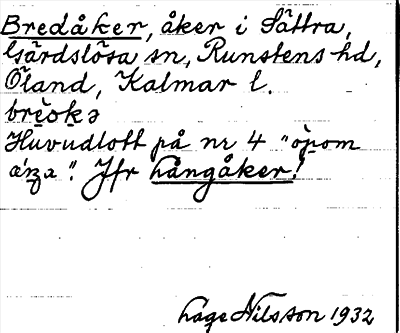 Bredåker, åker i Sättra,
Gärdslösa sn, Runstens hd,
Öland, Kalmar l.
Huvudlott på nr 4 "öpom
Jfr Långåker!
Låge Nilsson 1932